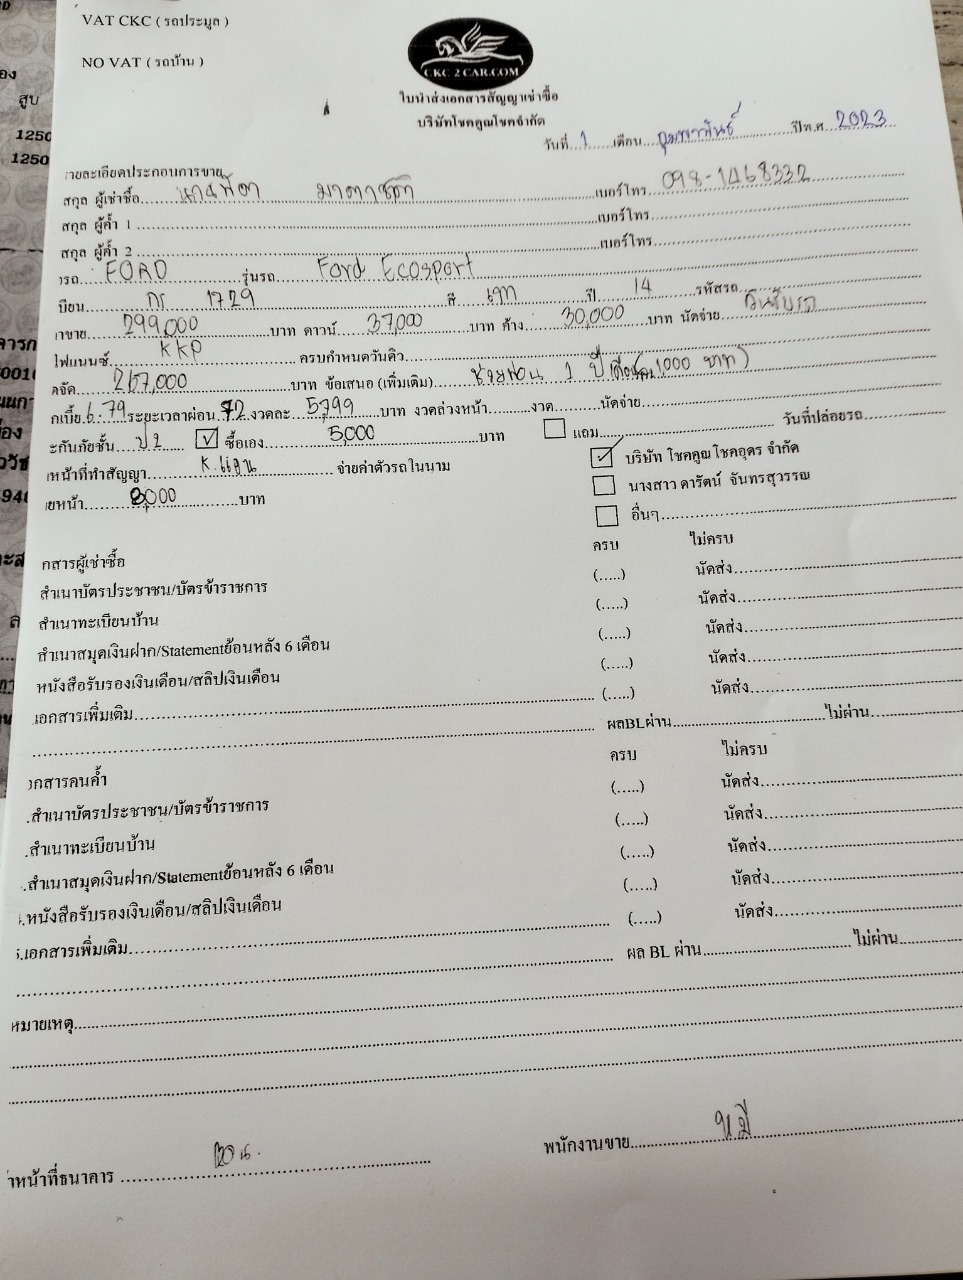 VAT CKC ( รถประมูล )
NO VAT ( รถบ้าน )
CKC 2 CAR.COM
ใบนำส่งเอกสารสัญญาเช่าซื้อ
บริษัทโชคคูณโชคจำกัด
วันที่ 1 เดือน กุมภาพันธ์ ปีพ.ศ 2023
ายละเอียดประกอบการขาย
สกุล ผู้เช่าซื้อ เบอร์โทร 098-1468332
สกุล ผู้ค้ำ 1 เบอร์โทร
สกุล ผู้ค้ำ 2 เบอร์โทร
รถ FORD รุ่นรถ Ford Ecosport
บียน กร 1729 สี เทา ปี 14 รหัสรถ
าขาย 299,000 บาท ดาวน์ 37,000 บาท ค้าง 30,000 บาท นัดจ่าย วันรับรถ
ไฟแนนซ์ KKP ครบกำหนดวันคิว
ดจัด 267,000 บาท ข้อเสนอ (เพิ่มเติม) ช่วยผ่อน 1 ปี (เดือนละ 1000 บาท)
กเบี้ย 6.79 ระยะเวลาผ่อน 72 งวดละ 5,799 บาท งวดล่วงหน้า งวด นัดจ่าย
ะกันภัยชั้น ป 2 ☑ ซื้อเอง 5,000 บาท ☐ แถม วันที่ปล่อยรถ
หน้าที่ทำสัญญา จ่ายค่าตัวรถในนาม ☑ บริษัท โชคคูณโชคอุดร จำกัด
ยหน้า 8,000 บาท ☐ นางสาว ดารัตน์ จันทรสุวรรณ
☐ อื่นๆ
กสารผู้เช่าซื้อ ครบ ไม่ครบ
สำเนาบัตรประชาชน/บัตรข้าราชการ (.....) นัดส่ง
สำเนาทะเบียนบ้าน (.....) นัดส่ง
สำเนาสมุดเงินฝาก/Statementย้อนหลัง 6 เดือน (.....) นัดส่ง
หนังสือรับรองเงินเดือน/สลิปเงินเดือน (.....) นัดส่ง
.เอกสารเพิ่มเติม (.....) นัดส่ง
ผลBLผ่าน ไม่ผ่าน
กสารคนค้ำ ครบ ไม่ครบ
.สำเนาบัตรประชาชน/บัตรข้าราชการ (.....) นัดส่ง
.สำเนาทะเบียนบ้าน (.....) นัดส่ง
.สำเนาสมุดเงินฝาก/Statementย้อนหลัง 6 เดือน (.....) นัดส่ง
.หนังสือรับรองเงินเดือน/สลิปเงินเดือน (.....) นัดส่ง
.เอกสารเพิ่มเติม (.....) นัดส่ง
ผล BL ผ่าน ไม่ผ่าน
หมายเหตุ
าหน้าที่ธนาคาร พนักงานขาย